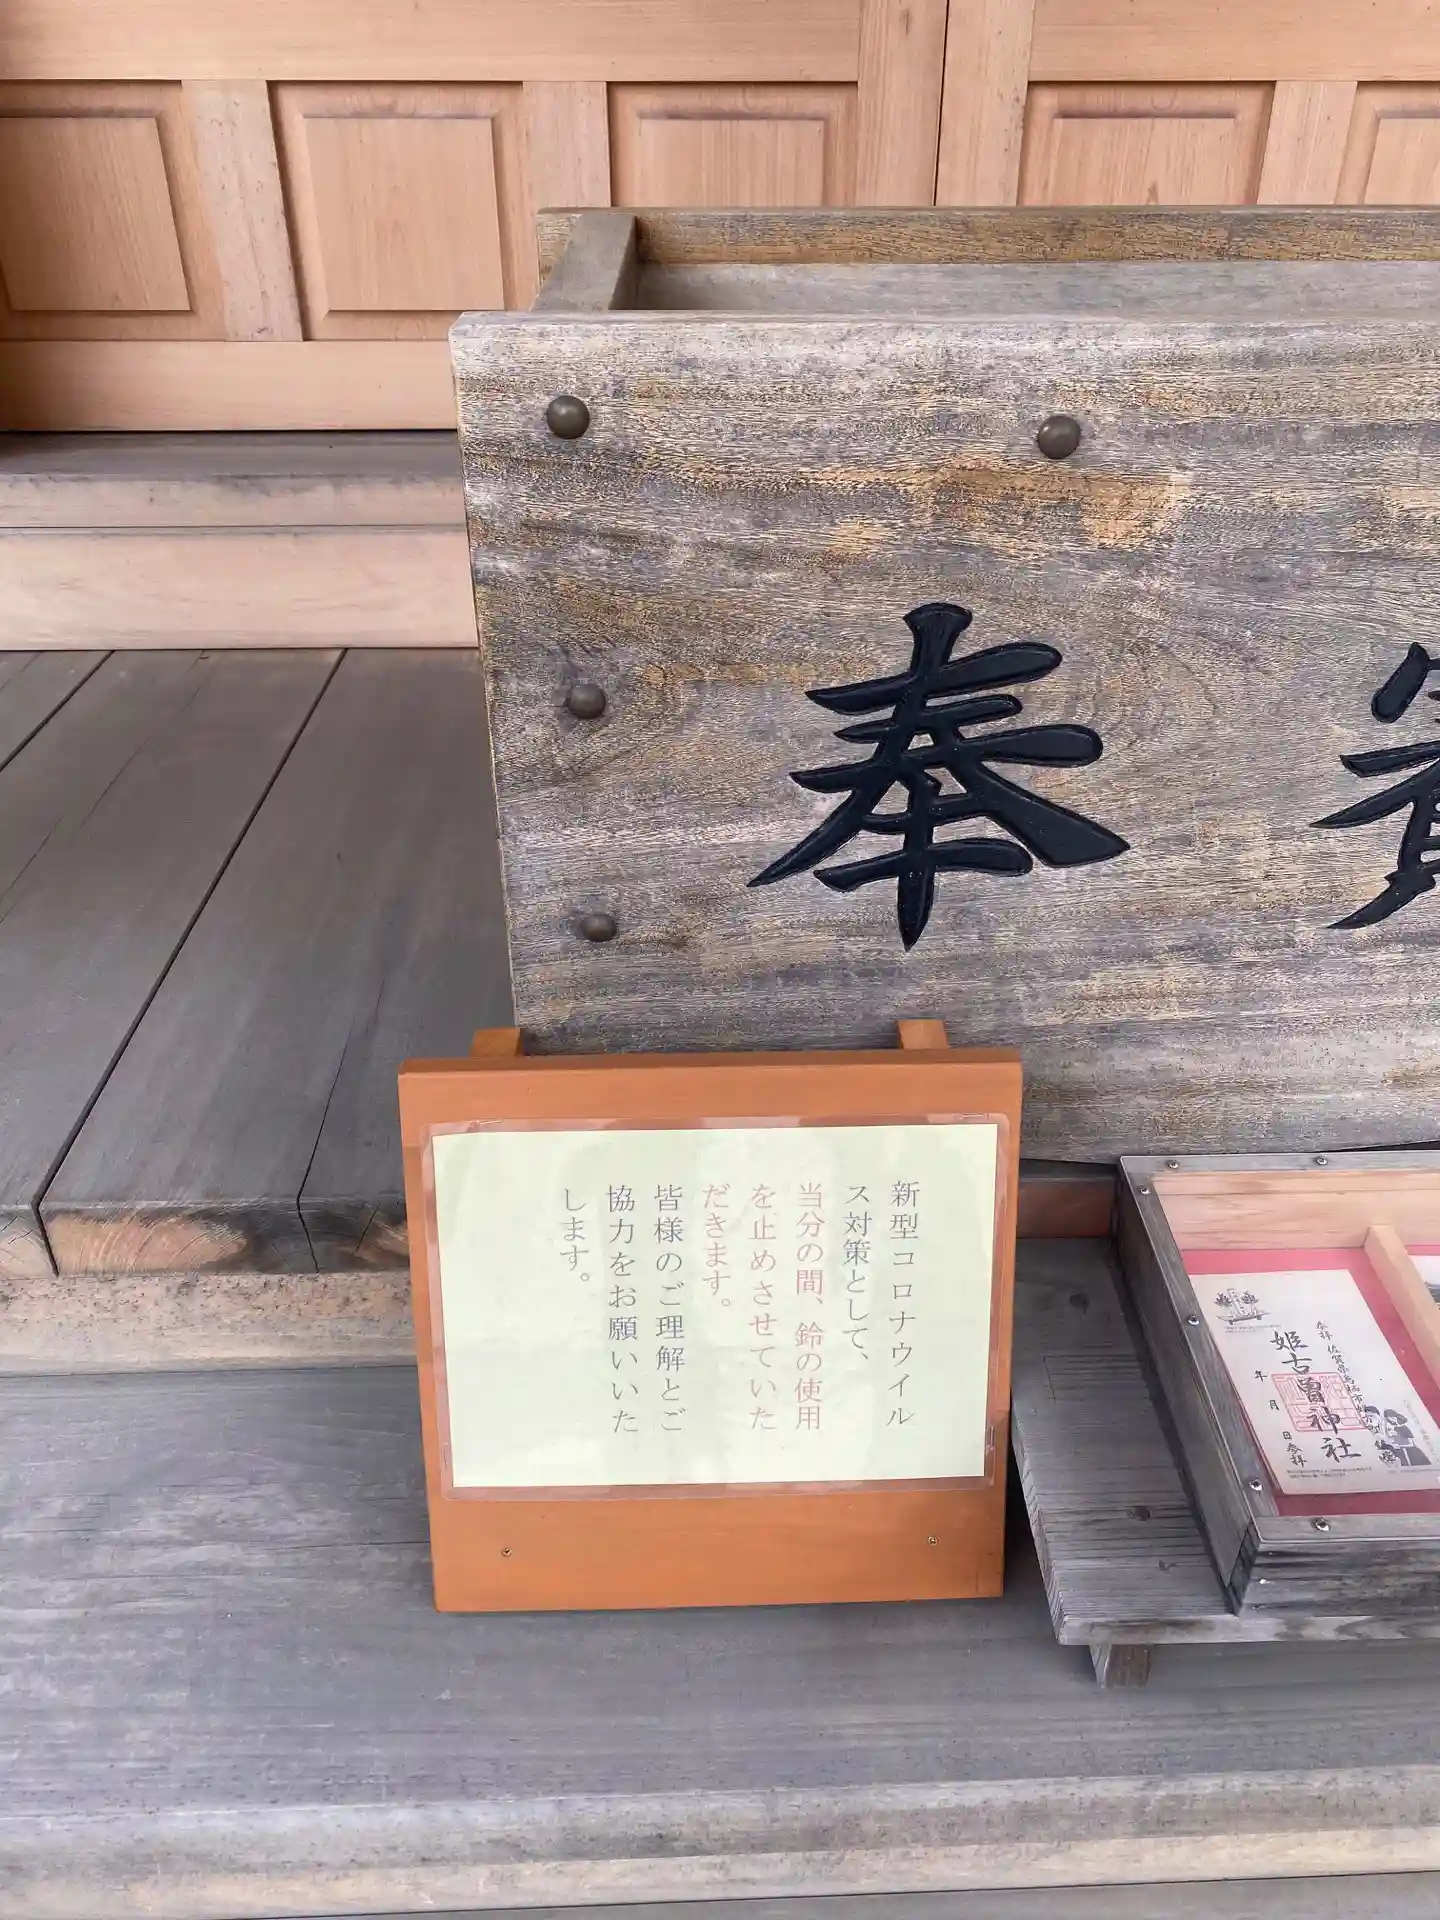 奉
新型コロナウイル
ス対策として、
当分の間、鈴の使用
を止めさせていた
だきます。
皆様のご理解とご
協力をお願いいた
します。
奉拝
佐賀県鳥栖市
姫古曽神社
年 月 日参拝